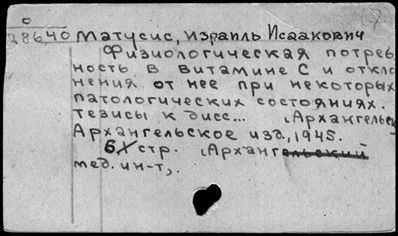 с
28640 Матусис, Израиль Исаакович
Физиологическая потреб
ность в витамине С и откло
нения от нее при некоторых
патологических состояниях.
тезисы к дисс... (Архангельск
Архангельское изд., 1945.
6 стр. (Архангельский
мед. ин-т).